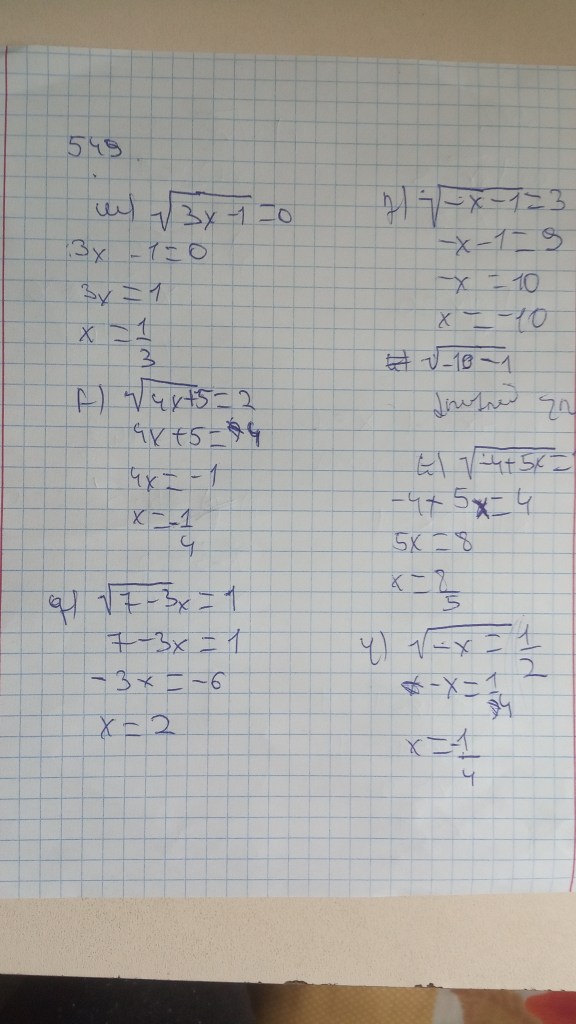 549.
ա) √(3x-1) = 0
3x - 1 = 0
3x = 1
x = 1/3
բ) √(4x+5) = 2
4x+5 = 4
4x = -1
x = -1/4
գ) √(7-3x) = 1
7-3x = 1
-3x = -6
x = 2
դ) √(-x-1) = 3
-x-1 = 9
-x = 10
x = -10
√(-10-1)
ե) √(-4+5x) =
-4+5x = 4
5x = 8
x = 8/5
զ) √(-x) = 1/2
-x = 1/4
x = -1/4